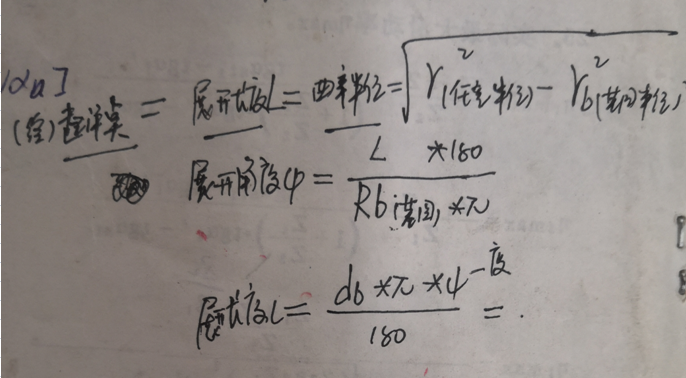 /αn]
(经)起评点 = 展开长度L = 曲率半径 = √r²(任意半径) - r²b(基圆半径)
展开角度φ = L *180 / Rb(基圆) *π
展长度L = db *π *φ-度 / 180 = .